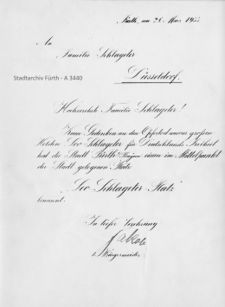 Fürth, am 28. März 1933.
An
Familie Schlageter
Stadtarchiv Fürth - A 3440
Düsseldorf.
Hochverehrte Familie Schlageter!
Zum Gedenken an den Opfertod unseres grossen
Helden Leo Schlageter für Deutschlands Freiheit
hat die Stadt Fürth einen im Mittelpunkt
der Stadt gelegenen Platz
"Leo Schlageter Platz"
benannt.
In tiefer Verehrung
Jakob
1. Bürgermeister